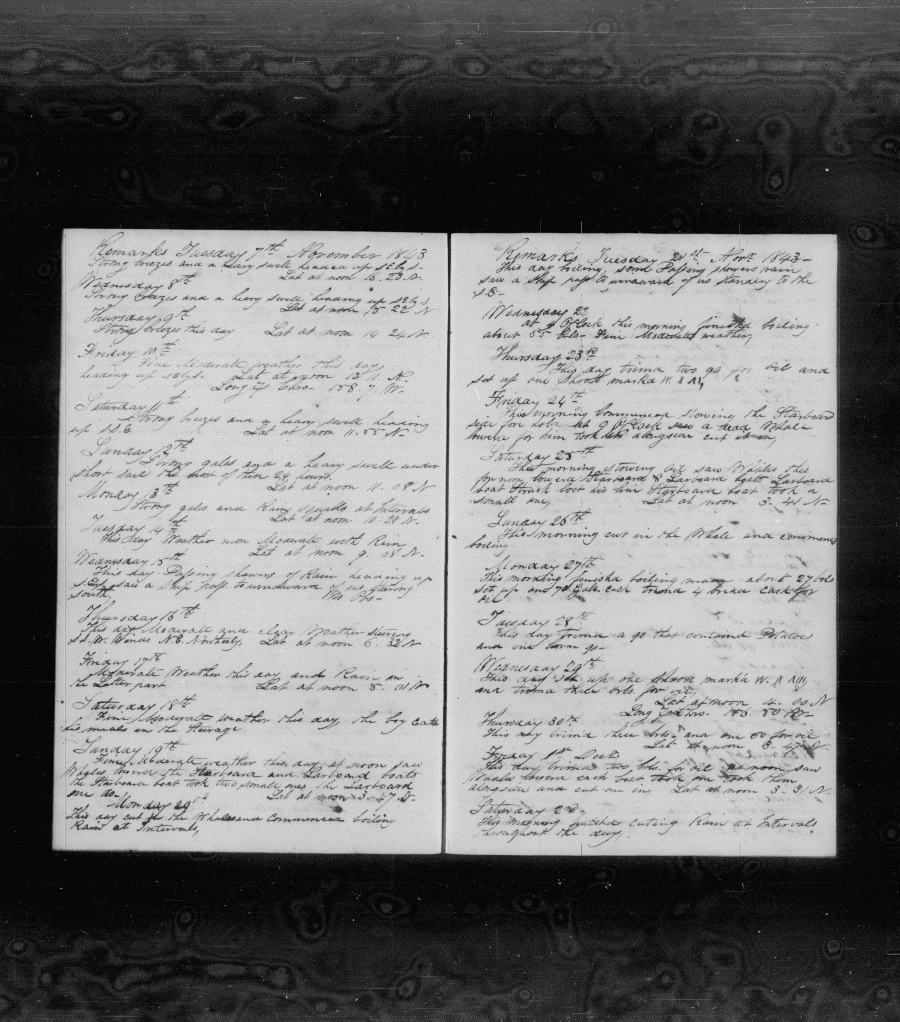 Remarks Tuesday 7th November 1843
Strong breezes and a heavy swell headed up SEbS
Lat at noon 16.23 N
Wednesday 8th
Strong breezes and a heavy swell heading up SEbS
Lat at noon 15 22 N
Thursday 9th
Strong breezes this day Lat at noon 14 24 N
Friday 10th
Fine Moderate weather this day
heading up SEbyS Lat at noon N
Long by Chro- 158. 7 W-
Saturday 11th
Strong breezes and a heavy swell heading
up S.S.E. Lat at noon 11. 55 N-
Sunday 12th
Strong gales and a heavy swell under
short sail the most of these 24 hours.
Lat at noon 11. 08 N
Monday 13th
Strong gales and Rainy squalls at Intervals
Lat at noon 10. 20 N-
Tuesday 14th
This day Weather more Moderate with Rain
Lat at noon 9. 08 N.
Wednesday 15th
This day Passing showers of Rain heading up
saw a Ship pass to windward of us stearing
South,
Thursday 16th
This day Moderate and clear Weather stearing
S.S.W. Winds N.E. Northerly, Lat at noon 6. 32 N
Friday 17th
Moderate Weather this day and Rain in
the Latter part Lat at noon 5. 01 N
Saturday 18th
Fine Moderate weather this day the boy eats
his meals in the Steerage
Sunday 19th
Fine Moderate weather this day at noon saw
Whales lowerd the Starboard and Larboard boats
the Starboard boat took two small ones the Larboard
one do-, Lat at noon 3. 47 N-
Monday 20th
This day cut in the Whales and Commenced boiling
Rain at Intervals,
Remarks Tuesday 21st Novr. 1843-
This day boiling, some Passing showers rain
saw a Ship pass to windward of us standing to the
S.E-
Wednesday 22
at O'Clock this morning finished boiling
about 55 bbls- Fine Moderate weather,
Thursday 23rd
This day trimd two go for oil and
set up one Shook markd W.
Friday 24th
This morning commenced stowing the Starboard
side fore hold at 9 O'Clock saw a dead Whale
lowerd for him took him alongside cut him in,
Saturday 25th
This morning stowing oil saw Whales this
forenoon, lowerd Starboard & Larboard boats Larboard
boat Struck lost his line Starboard boat took a
small one, Lat at noon 3- 41 N-
Sunday 26th
This morning cut in the Whale and commenced
boiling.
Monday 27th
This morning finishd boiling made about 27 bbls
set up one Gall. cask trimd 4 bread casks for
oil
Tuesday 28th
This day trimd a go that containd Potatoes
and one corn go-
Wednesday 29th
This day set up one shook markd W.
and trimd three bbls for oil,
Lat at noon 4- 00 N
Long
Thursday 30th
This day trimd three bbls- and one 60 for oil
Lat at noon 3- 47 N
Friday 1st Decr.
This day trimd two bbls for oil at noon, saw
Whales lowerd each boat took one took them
alongside and cut one in, Lat at noon 3- 31 N.
Saturday 2d-
This morning finishd cuting Rain at Intervals
throughout the day,